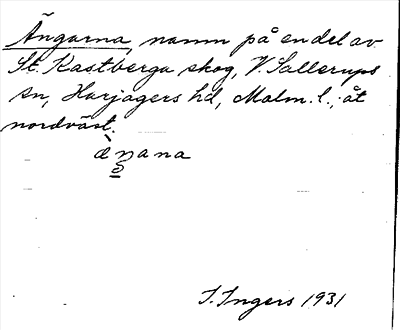 Ängarna, namn på en del av
St. Kastberga skog, V. Sallerups
sn, Harjagers hd, Malm. l., åt
nordväst.
æŋana
I. Ingers 1931